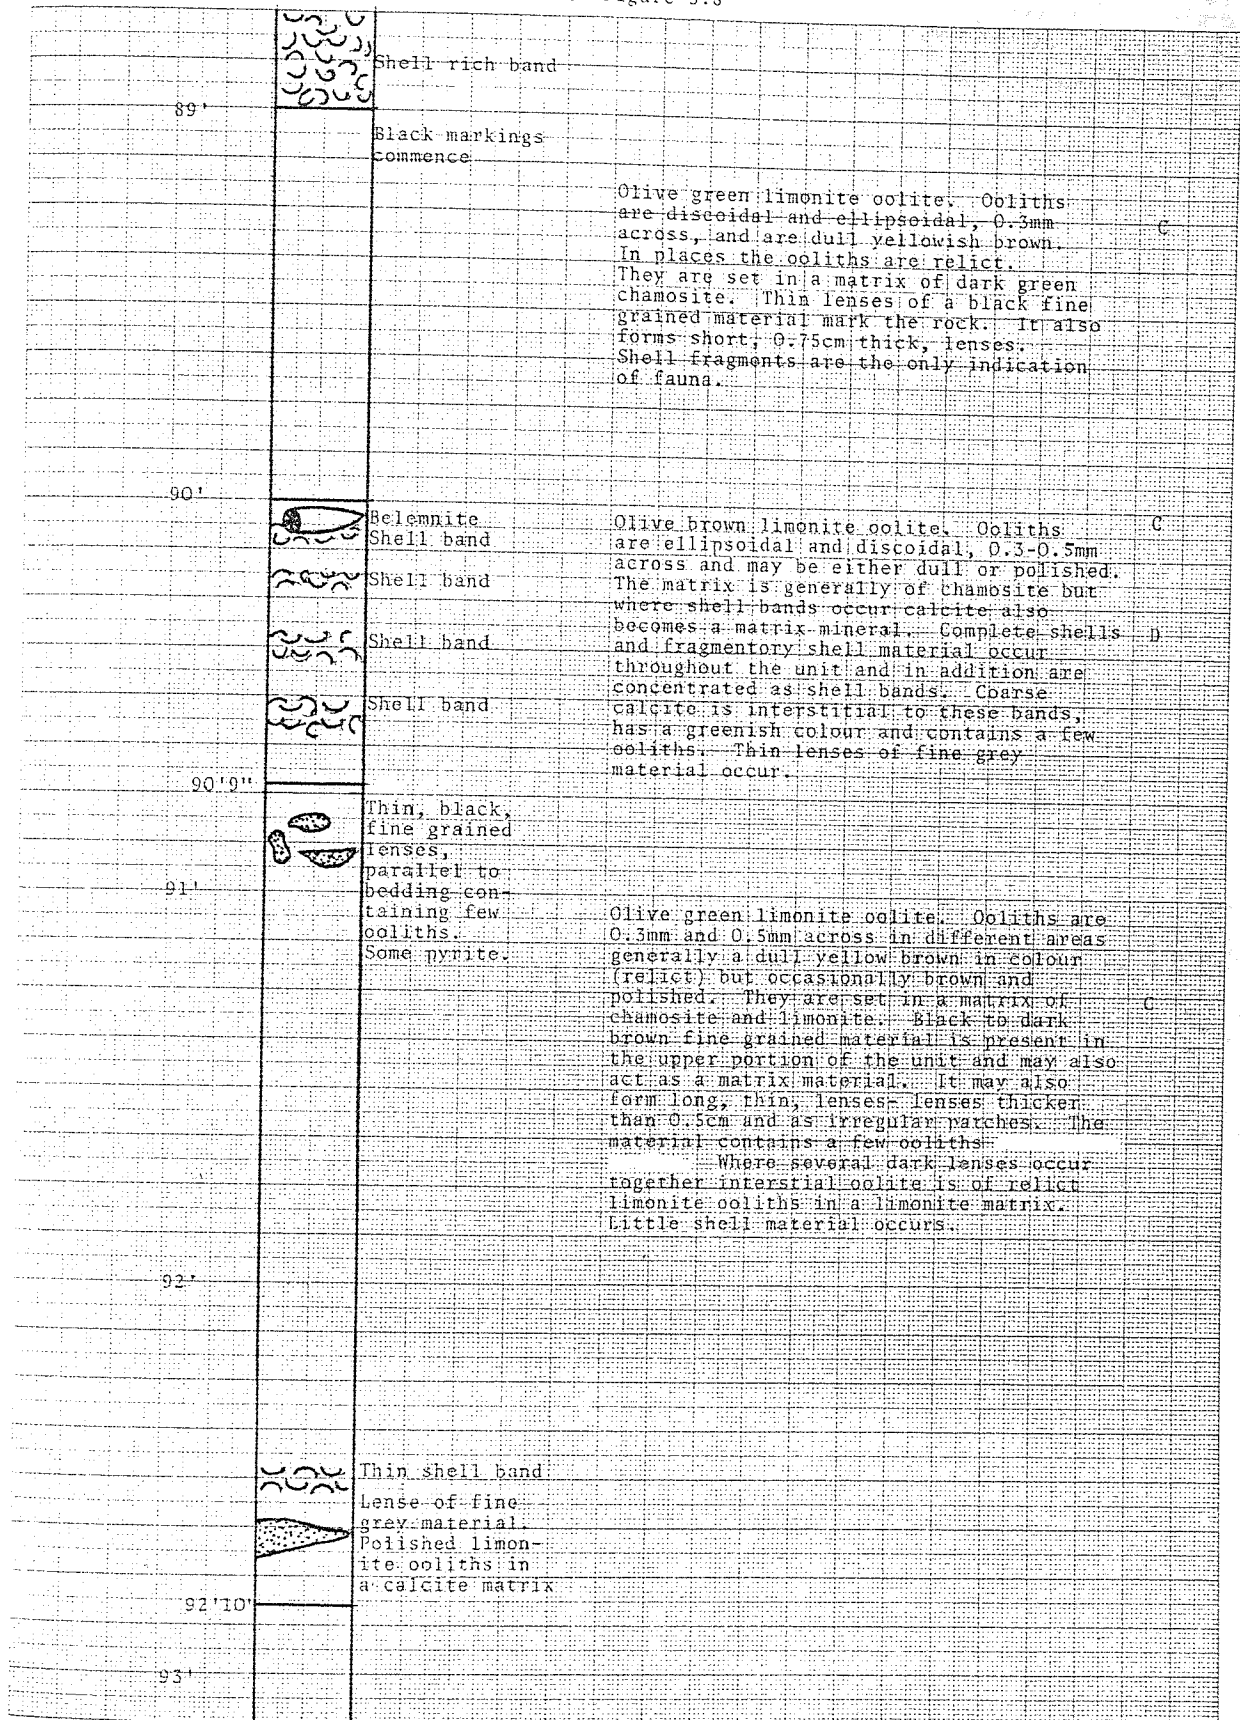 Figure 3.8
Shell rich band
89'
Black markings
commence
Olive green limonite oolite. Ooliths
are discoidal and ellipsoidal, 0.3mm
across, and are dull yellowish brown.
In places the ooliths are relict.
They are set in a matrix of dark green
chamosite. Thin lenses of a black fine
grained material mark the rock. It also
forms short, 0.75cm thick, lenses.
Shell fragments are the only indication
of fauna.
C
90'
Belemnite
Shell band
Shell band
Shell band
Shell band
Olive brown limonite oolite. Ooliths
are ellipsoidal and discoidal, 0.3-0.5mm
across and may be either dull or polished.
The matrix is generally of chamosite but
where shell bands occur calcite also
becomes a matrix mineral. Complete shells
and fragmentory shell material occur
throughout the unit and in addition are
concentrated as shell bands. Coarse
calcite is interstitial to these bands,
has a greenish colour and contains a few
ooliths. Thin lenses of fine grey
material occur.
C
D
90'9"
Thin, black,
fine grained
lenses,
parallel to
bedding con-
taining few
ooliths.
Some pyrite.
91'
Olive green limonite oolite. Ooliths are
0.3mm and 0.5mm across in different areas
generally a dull yellow brown in colour
(relict) but occasionally brown and
polished. They are set in a matrix of
chamosite and limonite. Black to dark
brown fine grained material is present in
the upper portion of the unit and may also
act as a matrix material. It may also
form long, thin, lenses- lenses thicker
than 0.5cm and as irregular patches. The
material contains a few ooliths
Where several dark lenses occur
together interstial oolite is of relict
limonite ooliths in a limonite matrix.
Little shell material occurs.
C
92'
Thin shell band
Lense of fine
grey material.
Polished limon-
ite ooliths in
a calcite matrix
92'10'
93'